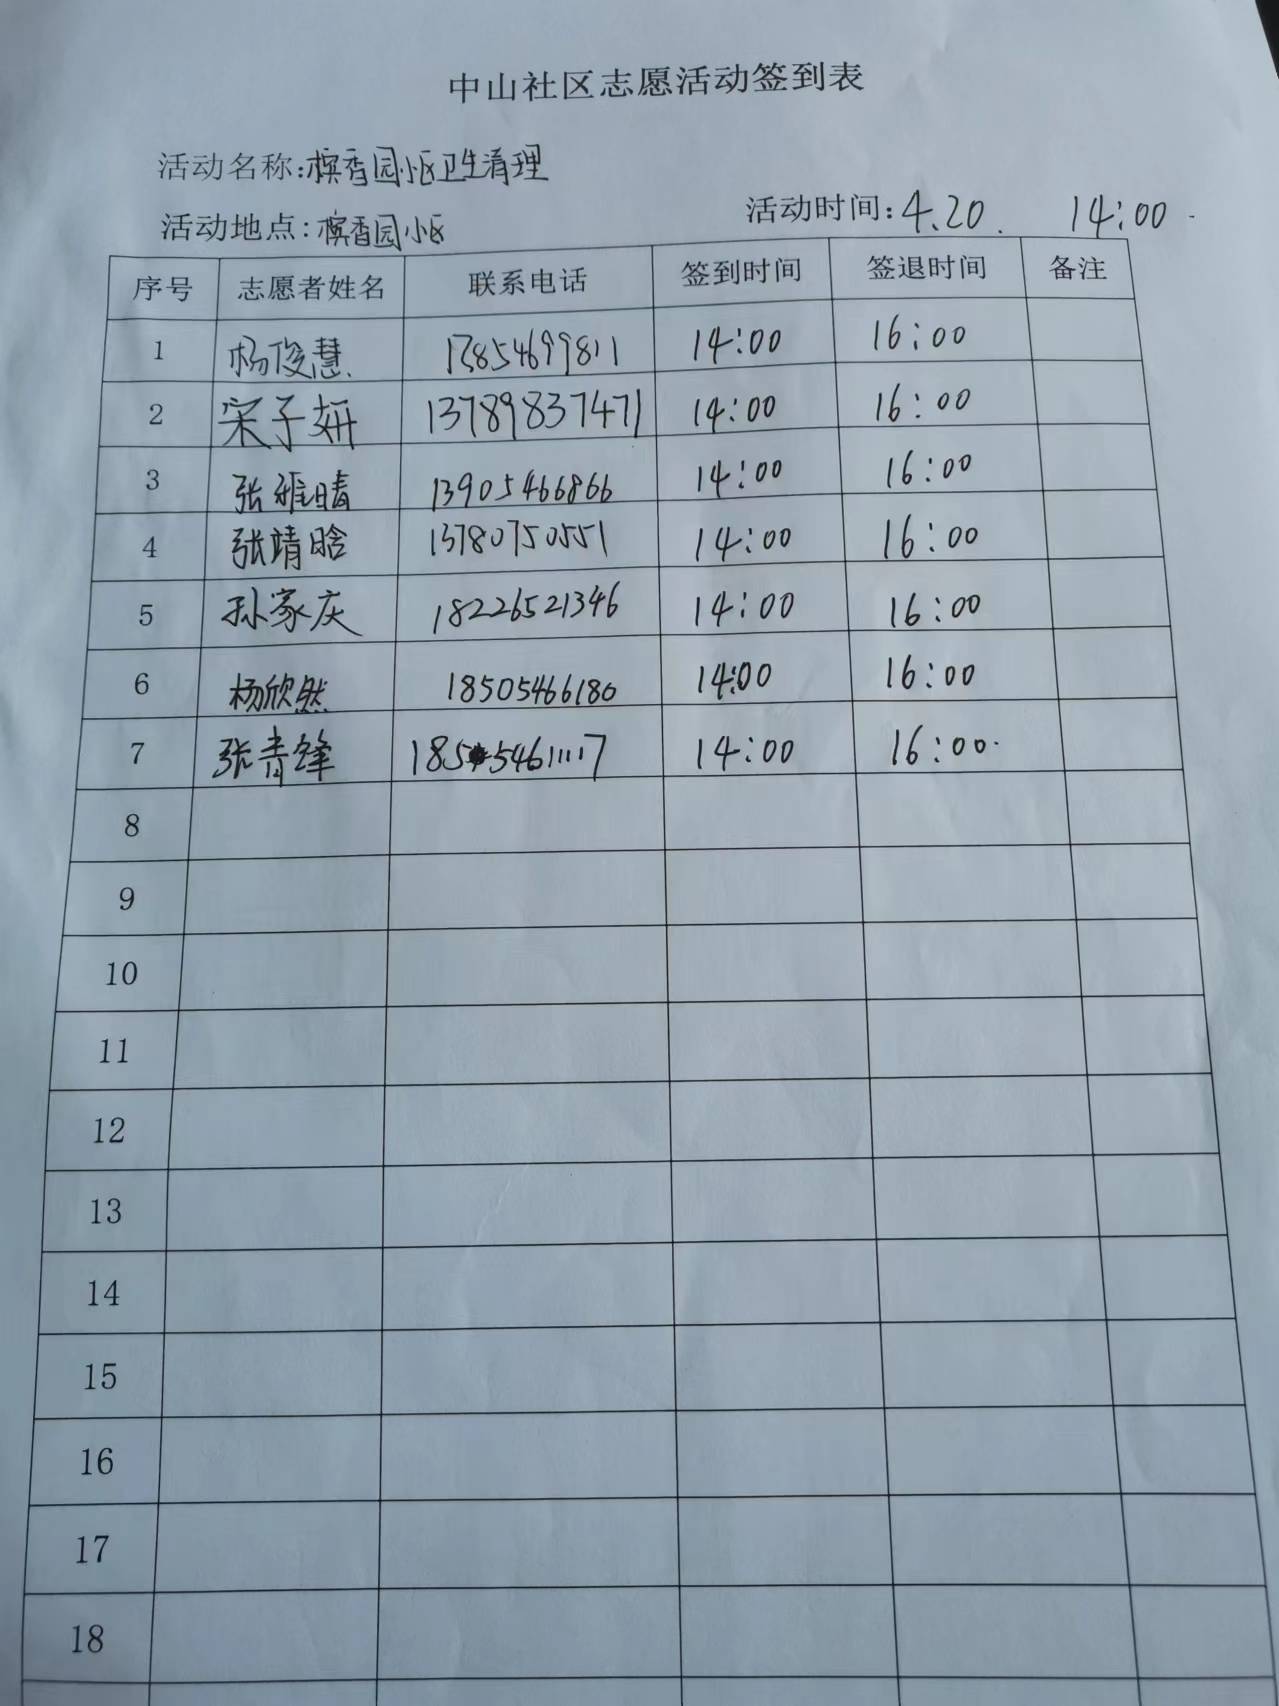 中山社区志愿活动签到表
活动名称:槟香园小区卫生清理
活动地点:槟香园小区 活动时间:4.20. 14:00
序号 志愿者姓名 联系电话 签到时间 签退时间 备注
1 杨俊慧 17854699811 14:00 16:00
2 宋子妍 13789837471 14:00 16:00
3 张雅晴 13905466866 14:00 16:00
4 张靖晗 13780750551 14:00 16:00
5 孙家庆 18226521346 14:00 16:00
6 杨欣然 18505466180 14:00 16:00
7 张青锋 14:00 16:00
8
9
10
11
12
13
14
15
16
17
18